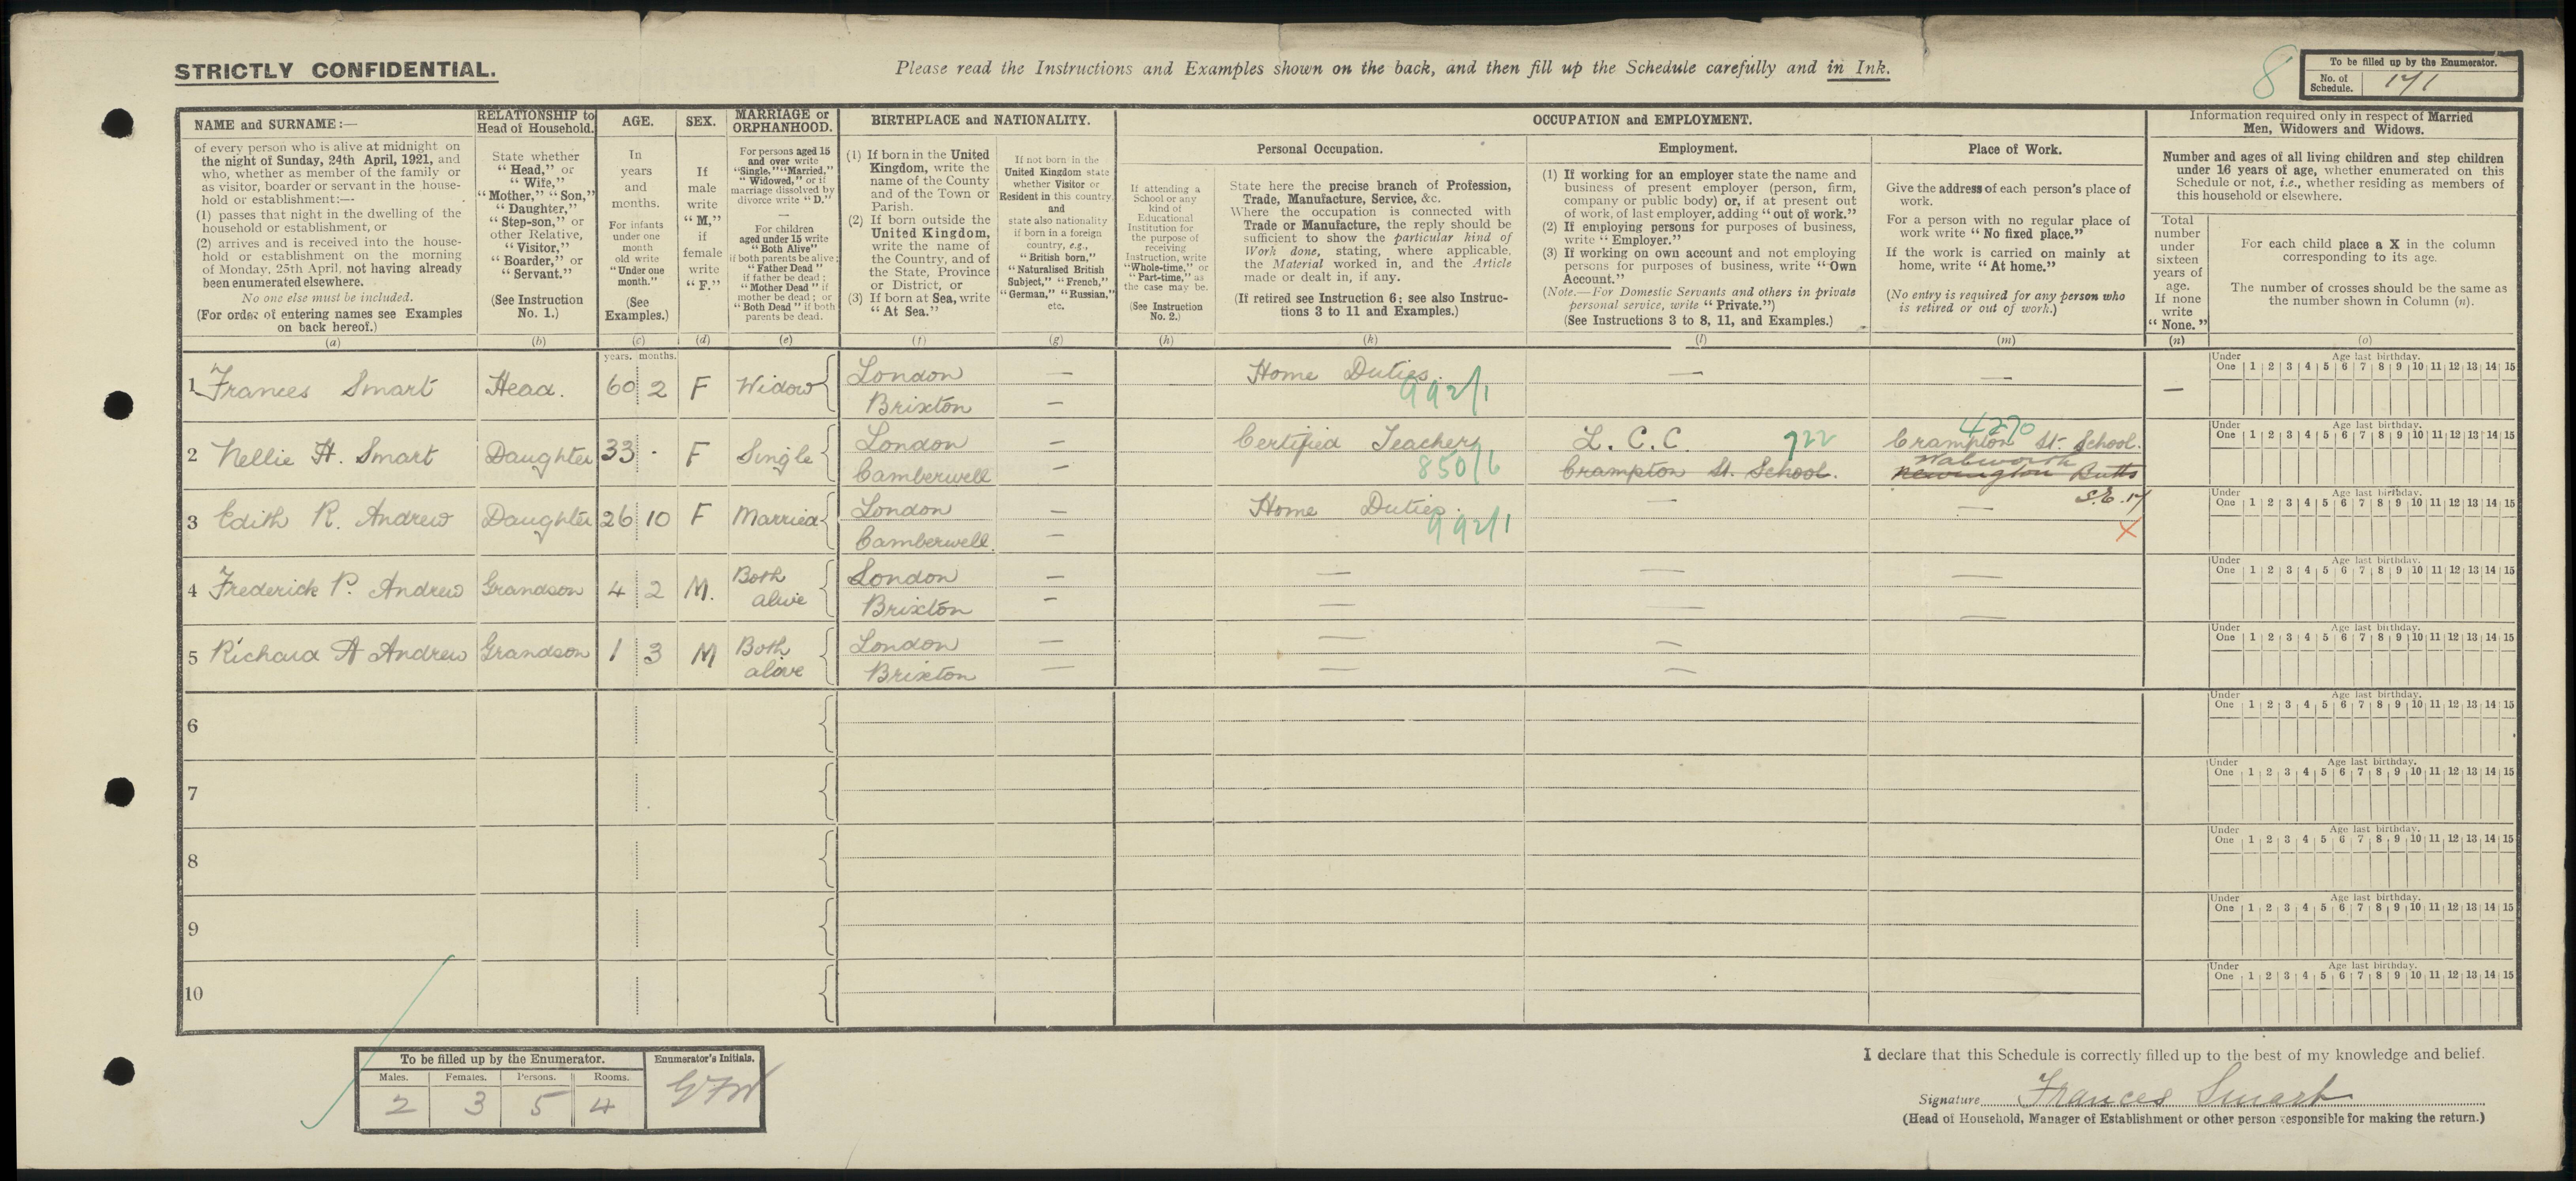 STRICTLY CONFIDENTIAL.
Please read the Instructions and Examples shown on the back, and then fill up the Schedule carefully and in Ink.
8
To be filled up by the Enumerator.
No. of Schedule. 171
NAME and SURNAME:—
of every person who is alive at midnight on
the night of Sunday, 24th April, 1921, and
who, whether as member of the family or
as visitor, boarder or servant in the house-
hold or establishment:—
(1) passes that night in the dwelling of the
household or establishment, or
(2) arrives and is received into the house-
hold or establishment on the morning
of Monday, 25th April, not having already
been enumerated elsewhere.
No one else must be included.
(For order of entering names see Examples
on back hereof.)
(a)
RELATIONSHIP to
Head of Household.
State whether
"Head," or
"Wife,"
"Mother," "Son,"
"Daughter,"
"Step-son," or
other Relative,
"Visitor,"
"Boarder," or
"Servant."
(See Instruction
No. 1.)
(b)
AGE.
In
years
and
months.
For infants
under one
month
old write
"Under one
month."
(See
Examples.)
(c)
SEX.
If
male
write
"M,"
if
female
write
"F."
(d)
MARRIAGE or
ORPHANHOOD.
For persons aged 15
and over write
"Single," "Married,"
"Widowed," or if
marriage dissolved by
divorce write "D."
—
For children
aged under 15 write
"Both Alive"
if both parents be alive;
"Father Dead"
if father be dead;
"Mother Dead" if
mother be dead; or
"Both Dead" if both
parents be dead.
(e)
BIRTHPLACE and NATIONALITY.
(1) If born in the United
Kingdom, write the
name of the County
and of the Town or
Parish.
(2) If born outside the
United Kingdom,
write the name of
the Country, and of
the State, Province
or District, or
(3) If born at Sea, write
"At Sea."
(f)
If not born in the
United Kingdom state
whether Visitor or
Resident in this country,
and
state also nationality
if born in a foreign
country, e.g.,
"British born,"
"Naturalised British
Subject," "French,"
"German," "Russian,"
etc.
(g)
OCCUPATION and EMPLOYMENT.
If attending a
School or any
kind of
Educational
Institution for
the purpose of
receiving
Instruction, write
"Whole-time," or
"Part-time," as
the case may be.
(See Instruction
No. 2.)
(h)
Personal Occupation.
State here the precise branch of Profession,
Trade, Manufacture, Service, &c.
Where the occupation is connected with
Trade or Manufacture, the reply should be
sufficient to show the particular kind of
Work done, stating, where applicable,
the Material worked in, and the Article
made or dealt in, if any.
(If retired see Instruction 6; see also Instruc-
tions 3 to 11 and Examples.)
(k)
Employment.
(1) If working for an employer state the name and
business of present employer (person, firm,
company or public body) or, if at present out
of work, of last employer, adding "out of work."
(2) If employing persons for purposes of business,
write "Employer."
(3) If working on own account and not employing
persons for purposes of business, write "Own
Account."
(Note.—For Domestic Servants and others in private
personal service, write "Private.")
(See Instructions 3 to 8, 11, and Examples.)
(l)
Place of Work.
Give the address of each person's place of
work.
For a person with no regular place of
work write "No fixed place."
If the work is carried on mainly at
home, write "At home."
(No entry is required for any person who
is retired or out of work.)
(m)
Information required only in respect of Married
Men, Widowers and Widows.
Number and ages of all living children and step children
under 16 years of age, whether enumerated on this
Schedule or not, i.e., whether residing as members of
this household or elsewhere.
Total
number
under
sixteen
years of
age.
If none
write
"None."
(n)
For each child place a X in the column
corresponding to its age.
The number of crosses should be the same as
the number shown in Column (n).
(o)
years. months.
1 Frances Smart Head. 60 2 F Widow London — Home Duties. 992/1 — — —
Brixton —
Under One Age last birthday. 1 2 3 4 5 6 7 8 9 10 11 12 13 14 15
2 Nellie H. Smart Daughter 33 - F Single London — Certified Teacher 850/6 L. C. C 722 4270 Crampton St. School.
Camberwell — Crampton St. School. Walworth Newington Butts
S.E. 17
Under One Age last birthday. 1 2 3 4 5 6 7 8 9 10 11 12 13 14 15
3 Edith R. Andrew Daughter 26 10 F Married London — Home Duties. 992/1 — —
Camberwell. — X
Under One Age last birthday. 1 2 3 4 5 6 7 8 9 10 11 12 13 14 15
4 Frederick P. Andrew Grandson 4 2 M. Both alive London — — — —
Brixton — — — —
Under One Age last birthday. 1 2 3 4 5 6 7 8 9 10 11 12 13 14 15
5 Richard A Andrew Grandson 1 3 M Both alive London — — —
Brixton — — —
Under One Age last birthday. 1 2 3 4 5 6 7 8 9 10 11 12 13 14 15
6
Under One Age last birthday. 1 2 3 4 5 6 7 8 9 10 11 12 13 14 15
7
Under One Age last birthday. 1 2 3 4 5 6 7 8 9 10 11 12 13 14 15
8
Under One Age last birthday. 1 2 3 4 5 6 7 8 9 10 11 12 13 14 15
9
Under One Age last birthday. 1 2 3 4 5 6 7 8 9 10 11 12 13 14 15
10
Under One Age last birthday. 1 2 3 4 5 6 7 8 9 10 11 12 13 14 15
To be filled up by the Enumerator.
Males. Females. Persons. Rooms.
2 3 5 4
Enumerator's Initials.
GFW
I declare that this Schedule is correctly filled up to the best of my knowledge and belief.
Signature Frances Smart
(Head of Household, Manager of Establishment or other person responsible for making the return.)